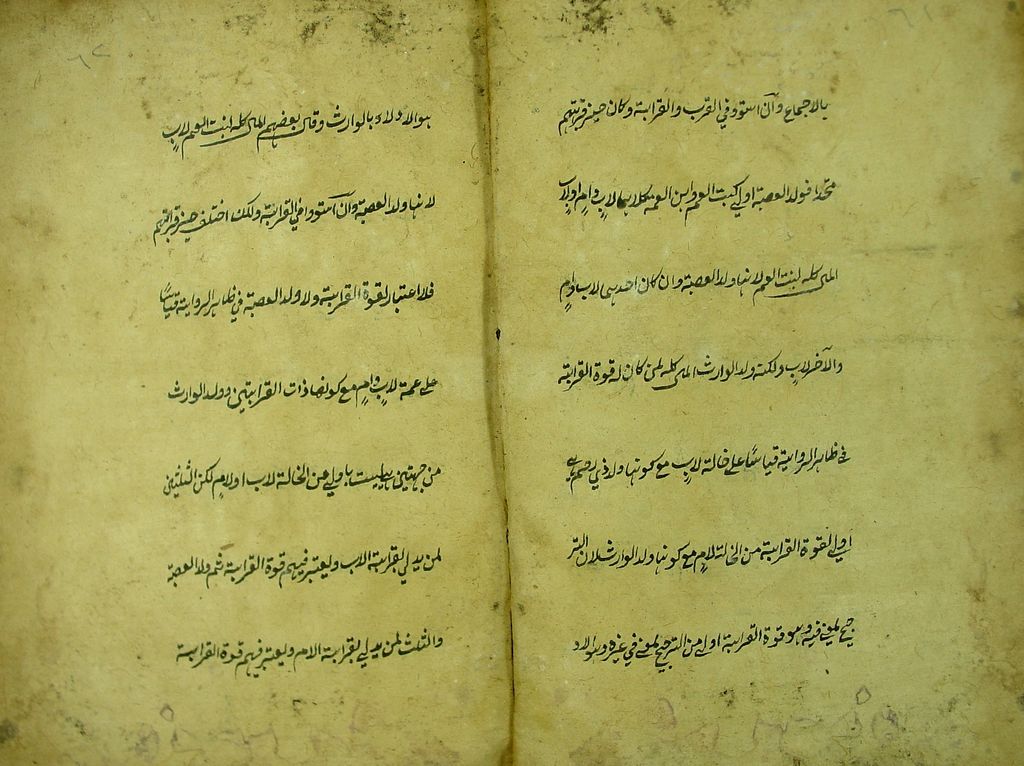 ٦١
بالاجماع وان استووا في القرب والقرابة وكان حيز قرابتهم
متحدا فولد العصبة اولى كبنت العم وابن العمة كلاهما لاب وام او لاب
المال كله لبنت العم لانها ولد العصبة وان كان احدهما لاب وام
والآخر لاب ولكنه ولد الوارث المال كله لمن كان له قوة القرابة
في ظاهر الرواية قياسًا على خالة لاب مع كونها ولد ذي رحم هي
اولى لقوة القرابة من الخالة لام مع كونها ولد الوارث لان التر
جيح لمعنى فيه وهو قوة القرابة اولى من الترجيح لمعنى في غيره وهو الاد
٦٢
هو الادلاء بالوارث وقال بعضهم المال كله لبنت العم لاب
لانها ولد العصبة وان استووا في القرابة ولكن اختلف حيز قرابتهم
فلا اعتبار لقوة القرابة ولا ولد العصبة في ظاهر الرواية قياسًا
على عمة لاب وام مع كونها ذات القرابتين وولد الوارث
من جهتين ليست باولى من الخالة لاب او لام لكن الثلثين
لمن يدلي بقرابة الاب ويعتبر فيهم قوة القرابة ثم ولد العصبة
والثلث لمن يدلي بقرابة الام ويعتبر فيهم قوة القرابة